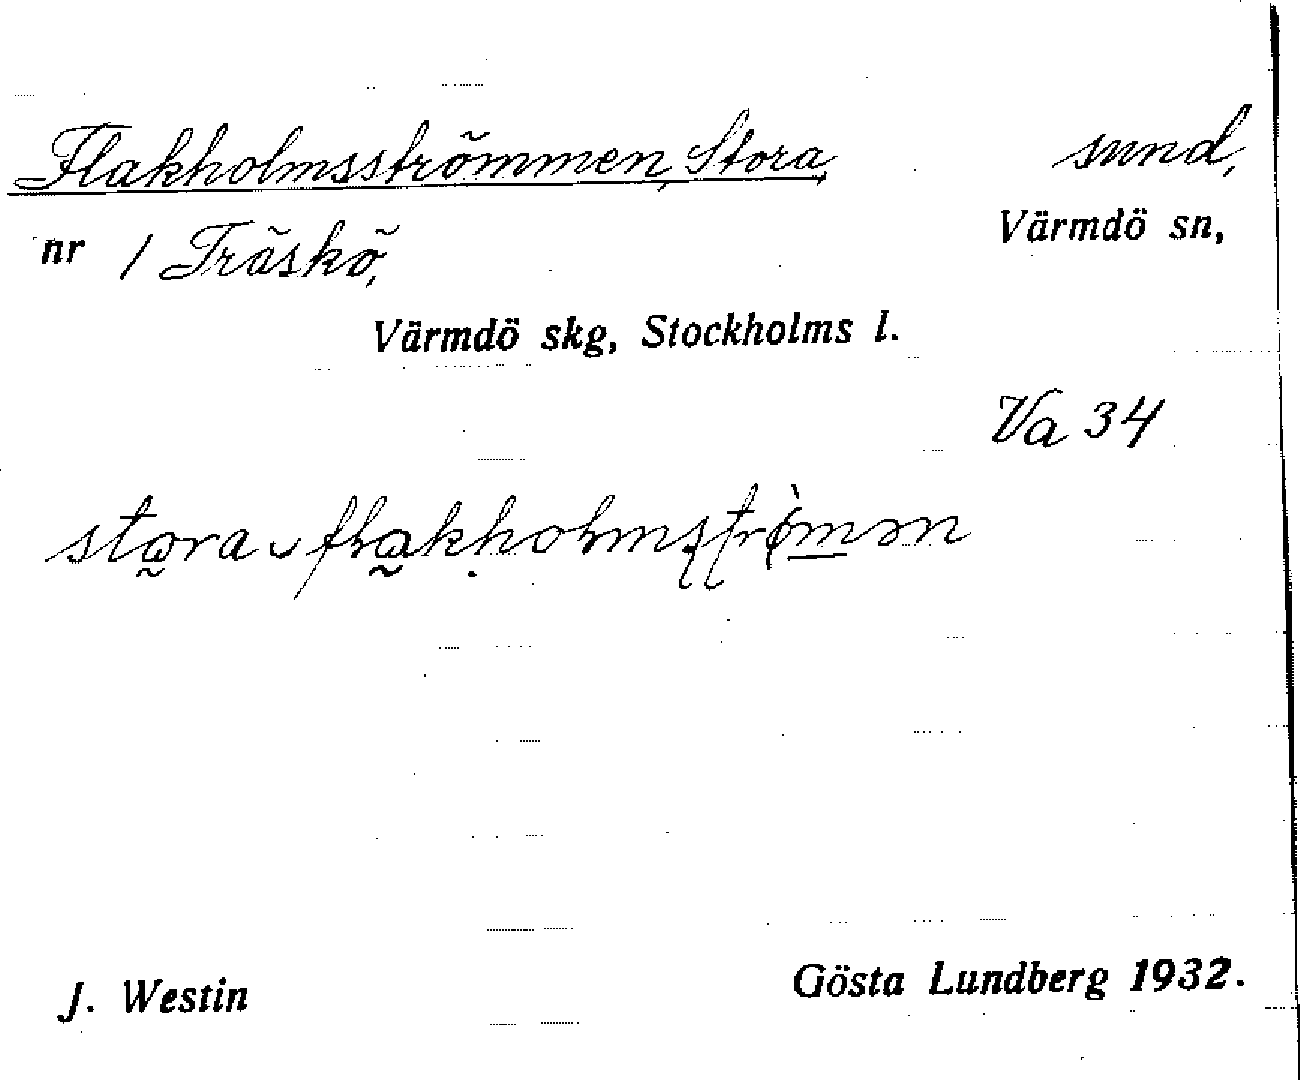 Flakholmsströmmen, Stora, sund,
nr 1 Träskö, Värmdö sn,
Värmdö skg, Stockholms l.
Va 34
J. Westin Gösta Lundberg 1932.